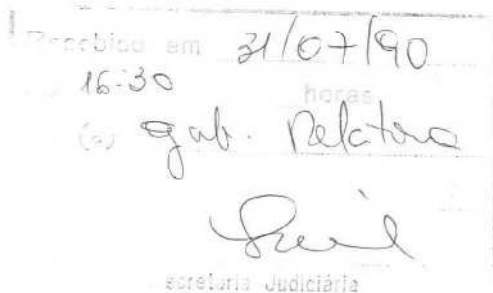 Recebido em 31/07/90
16:30 horas
(a) gab. Relatora
Secretaria Judiciária